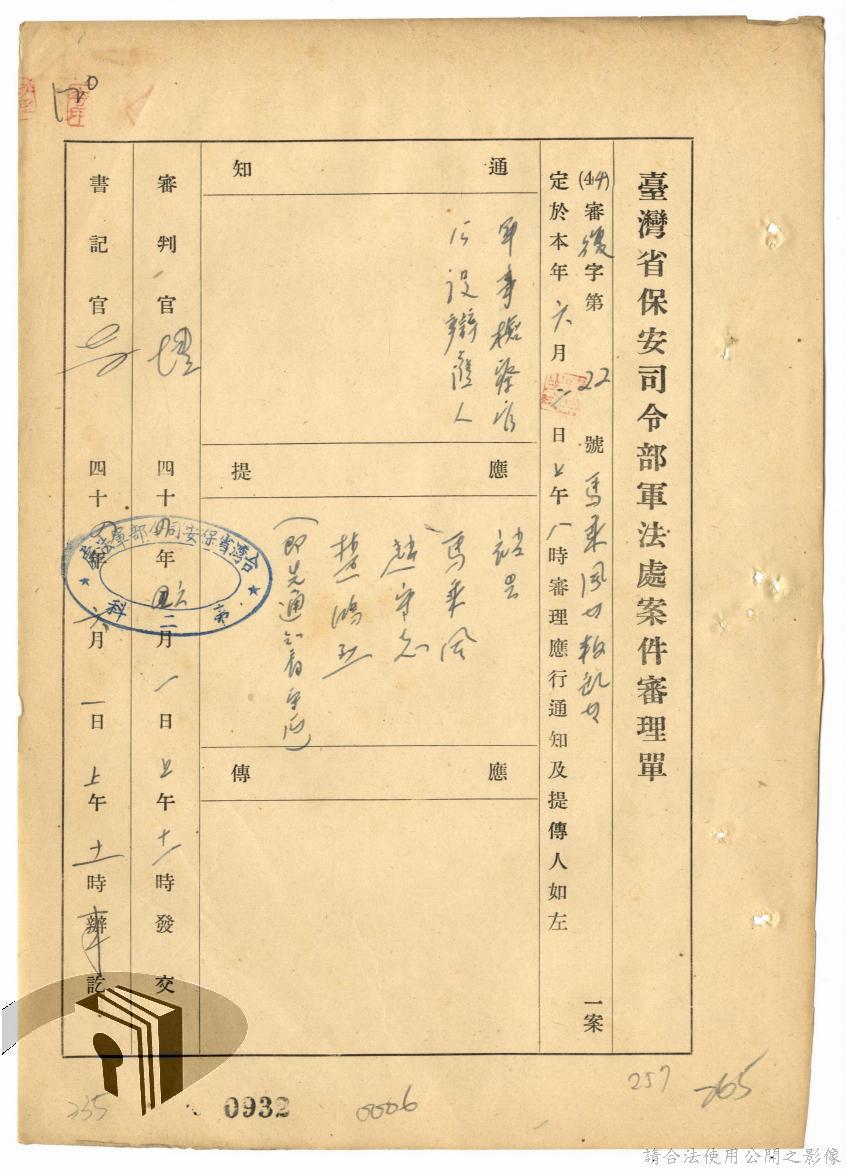 臺灣省保安司令部軍法處案件審理單
(44)審復字第22號馬乘風等叛亂等一案
定於本年六月二日上午八時審理應行通知及提傳人如左
通知
軍事檢察官
公設辯護人
應提
被告
馬乘風
趙守志
楚鴻烈
應傳
審判官
四十四年六月一日上午十一時發交
書記官
四十四年六月一日上午十一時辦訖
台灣省保安司令部軍法處
第二科
120
255
0932
0006
257
265
請合法使用公開之影像